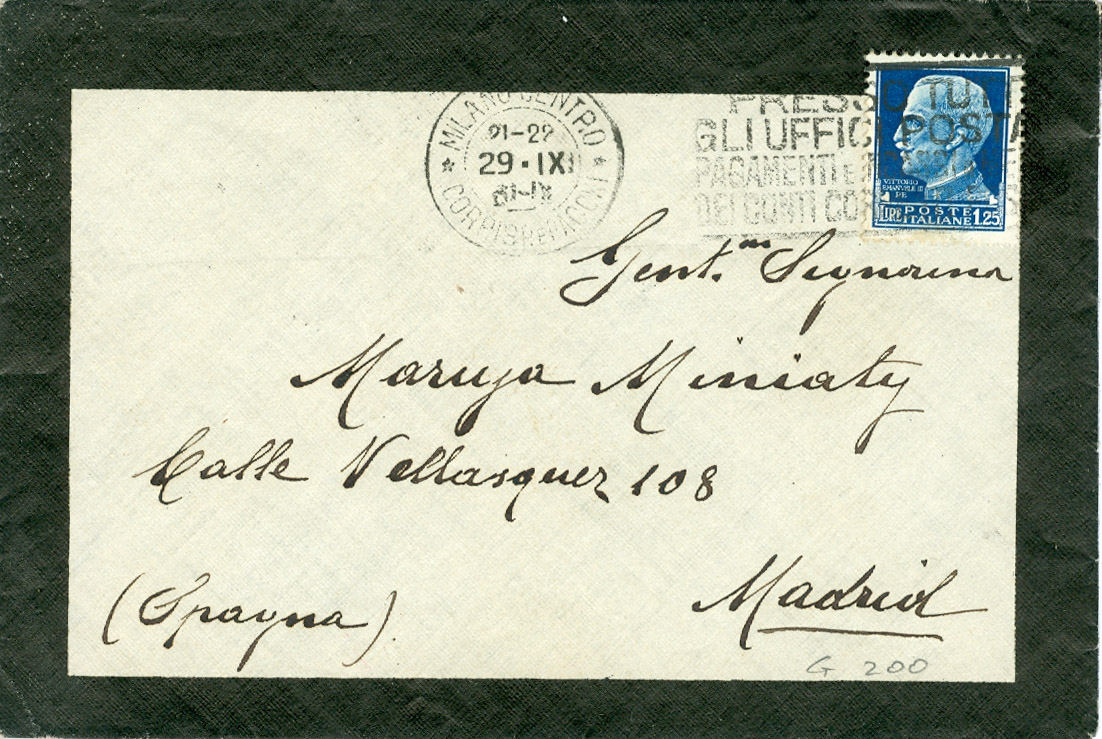 MILANO CENTRO
21-22
29·IX
CORRISP.PACCHI
PRESSO TUT
GLI UFFICI POSTA
PAGAMENTI E
DEI CONTI CO
VITTORIO
EMANUELE III
RE
POSTE
LIRE ITALIANE 1.25
Gent.ma Signorina
Maruja Miniaty
Calle Vellasquez 108
(Spagna).
Madrid
G 200